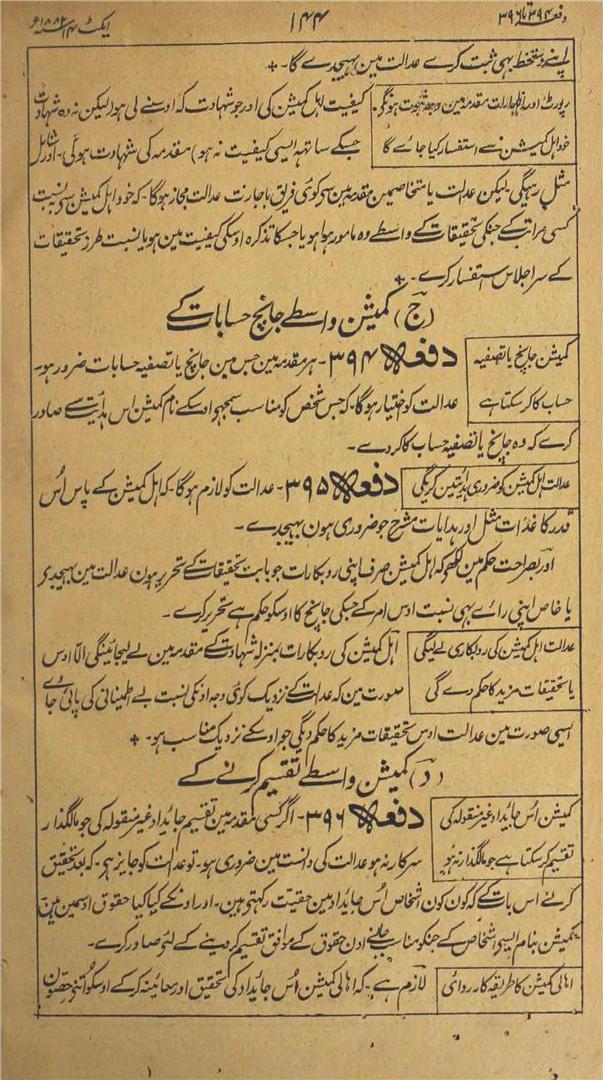 دفعہ ۳۹۴ تا ۳۹۶
۱۴۴
ایکٹ ۱۴ سنہ ۱۸۸۲ء
اپنے دستخط بھی ثبت کرے عدالت مین بہیجدے گا۔
رپورٹ اور اظہارات مقدمہ مین وجہ ثبوت ہونگے
خود اہل کمیشن سے استفسار کیا جائے گا
کیفیت اہل کمیشن کی اور جو شہادت کہ اوسنے لی ہو (لیکن نہ وہ شہادت
جسکے ساتہہ ایسی کیفیت نہ ہو) مقدمہ کی شہادت ہوگی۔ اور شامل
مثل رہیگی۔ لیکن عدالت یا متخاصمین مقدمہ مین سے کوئی فریق باجازت عدالت مجاز ہوگا۔ کہ خود اہل کمیشن سے بہ نسبت
کسی مراتب کے جنکی تحقیقات کے واسطے وہ مامور ہوا ہو یا جسکا تذکرہ اوسکی کیفیت مین ہو یا نسبت طرز تحقیقات
کے سر اجلاس استفسار کرے۔
(ج) کمیشن واسطے جانچ حسابات کے
کمیشن جانچ یا تصفیہ
حساب کا کر سکتا ہے
دفعہ ۳۹۴۔ ہر مقدمہ مین جس مین جانچ یا تصفیہ حسابات ضرور ہو۔
عدالت کو اختیار ہوگا۔ کہ جس شخص کو مناسب سمجہو اوسکے نام کمیشن اس ہدایت سے صادر
کرے کہ وہ جانچ یا تصفیہ حساب کا کردے۔
عدالت اہل کمیشن کو ضروری ہدایتین کریگی
دفعہ ۳۹۵۔ عدالت کو لازم ہوگا۔ کہ اہل کمیشن کے پاس اُس
قدر کاغذات مثل اور ہدایات مشرح جو ضروری ہون بہیجدے۔
اور بصراحت حکم مین لکھے کہ اہل کمیشن صرف اپنی روبکارات جو بابت تحقیقات کے تحریر ہون عدالت مین بہیجدی
یا خاص اپنی رائے بہی نسبت اوس امر کے جسکی جانچ کا اوسکو حکم ہے تحریر کرے۔
عدالت اہل کمیشن کی روبکاری لے لیگی
یا تحقیقات مزید کا حکم دے گی
اہل کمیشن کی روبکارات بمنزلہ شہادت کے مقدمہ مین لے لیجائینگی الّا اوس
صورت مین کہ عدالت کے نزدیک کوئی وجہ اونکی نسبت بے اطمینانی کی پائی جاے
ایسی صورت مین عدالت اوس تحقیقات مزید کا حکم دیگی جو اوسکے نزدیک مناسب ہو۔
(د) کمیشن واسطے تقسیم کرنے کے
کمیشن اُس جائداد غیر منقولہ کی
تقسیم کر سکتا ہے جو مالگذار نہ ہو
دفعہ ۳۹۶۔ اگر کسی مقدمہ مین تقسیم جائداد غیر منقولہ کی جو مالگذار
سرکار نہ ہو عدالت کی دانست مین ضروری ہو۔ تو عدالت کو جائز ہے۔ کہ بعد تحقیق
کرنے اس بات کے کہ کون کون اشخاص اُس جائداد مین حقیت رکہتے ہین۔ اور اونکے کیا کیا حقوق اوسمین ہین
کمیشن بنام ایسی اشخاص کے جنکو مناسب جانے اون حقوق کے موافق تقسیم کر دینے کے لئے صادر کرے۔
اہالی کمیشن کا طریقہ کارروائی
لازم ہے۔ کہ اہالی کمیشن اُس جائداد کی تحقیق اور معائینہ کر کے اوسکو اُتنے حصّون